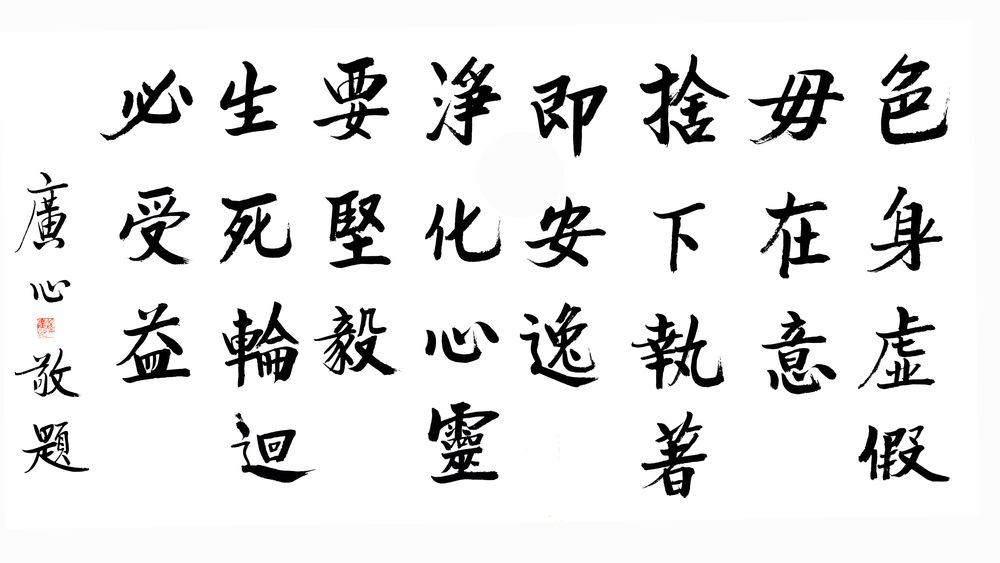 色身虛假
毋在意
捨下執著
即安逸
淨化心靈
要堅毅
生死輪迴
必受益
廣心敬題